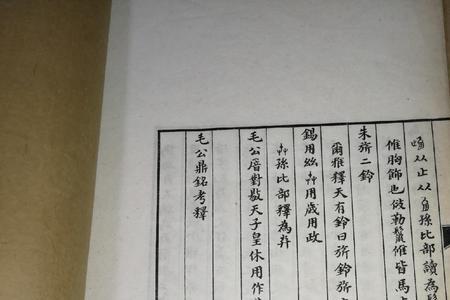 从止从 孫比部讀為
惟胸飾也攸勒 惟皆馬
朱旂二鈴
爾雅釋天有鈴曰旂鈴旂
錫用丝 用歲用政
孫比部釋為弁
毛公厝對敭天子皇休用作
毛公鼎銘考釋